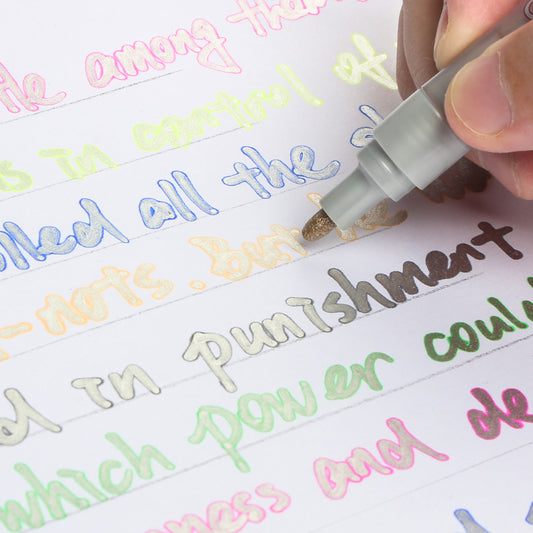 among them
s in control of
lled all the
-nots. But he
d in punishment
which power could
ness and de